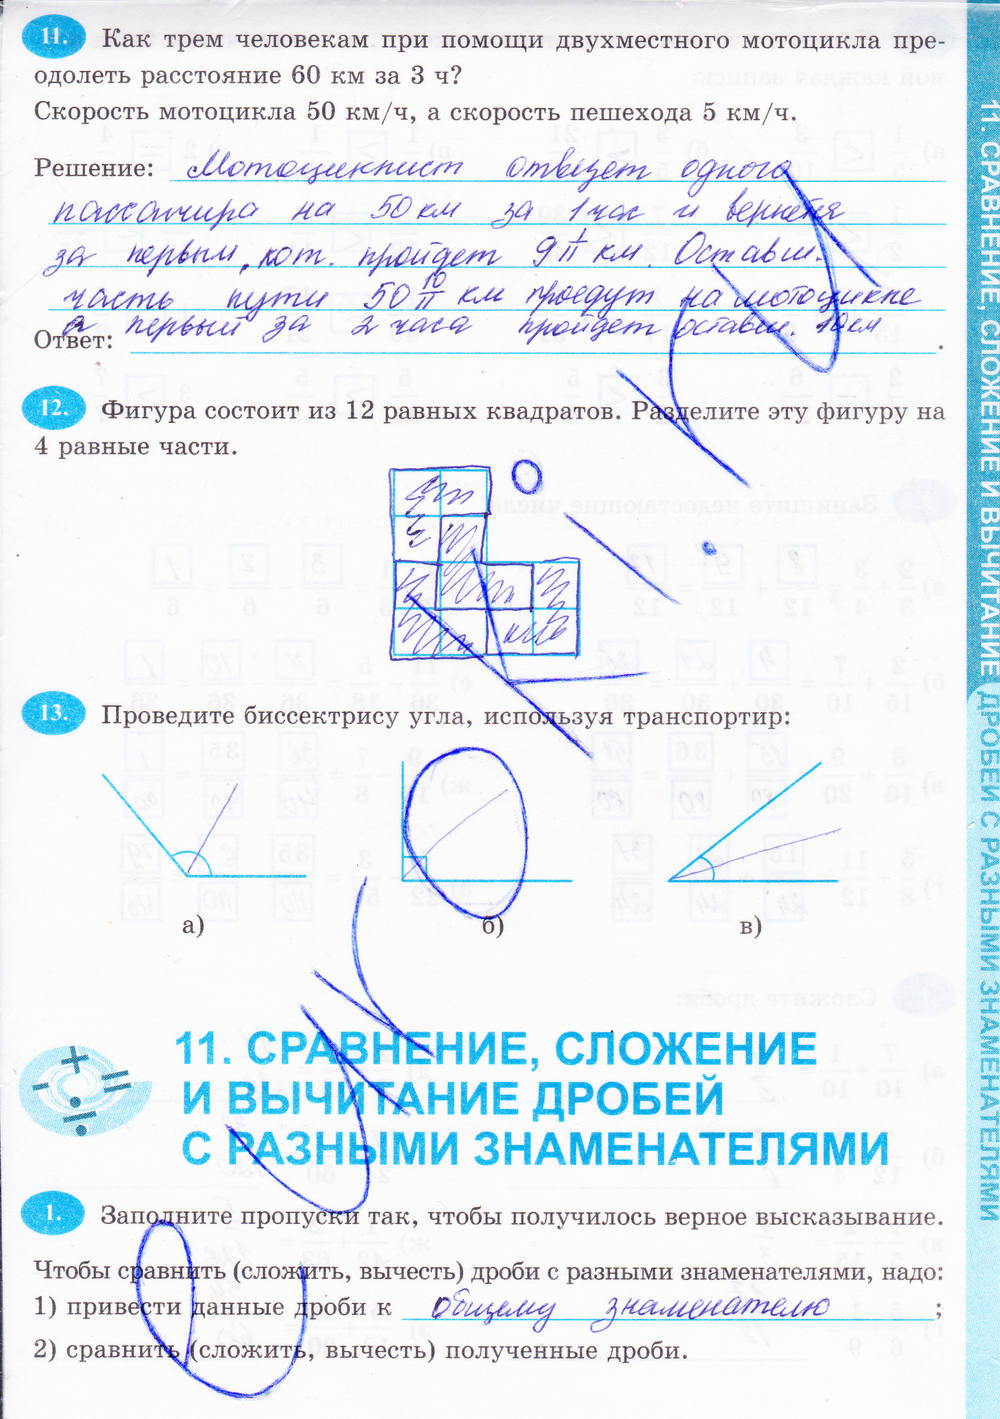 11. Как трем человекам при помощи двухместного мотоцикла пре-
одолеть расстояние 60 км за 3 ч?
Скорость мотоцикла 50 км/ч, а скорость пешехода 5 км/ч.
Решение: Мотоциклист отвезет одного
пассажира на 50 км за 1 час и вернется
за первым, кот. пройдет 9 1/11 км. Оставш.
часть пути 50 10/11 км проедут на мотоцикле
а первый за 2 часа пройдет оставш. 10 км
Ответ: .
12. Фигура состоит из 12 равных квадратов. Разделите эту фигуру на
4 равные части.
13. Проведите биссектрису угла, используя транспортир:
а) б) в)
11. СРАВНЕНИЕ, СЛОЖЕНИЕ
И ВЫЧИТАНИЕ ДРОБЕЙ
С РАЗНЫМИ ЗНАМЕНАТЕЛЯМИ
1. Заполните пропуски так, чтобы получилось верное высказывание.
Чтобы сравнить (сложить, вычесть) дроби с разными знаменателями, надо:
1) привести данные дроби к общему знаменателю ;
2) сравнить (сложить, вычесть) полученные дроби.
11. СРАВНЕНИЕ, СЛОЖЕНИЕ И ВЫЧИТАНИЕ ДРОБЕЙ С РАЗНЫМИ ЗНАМЕНАТЕЛЯМИ